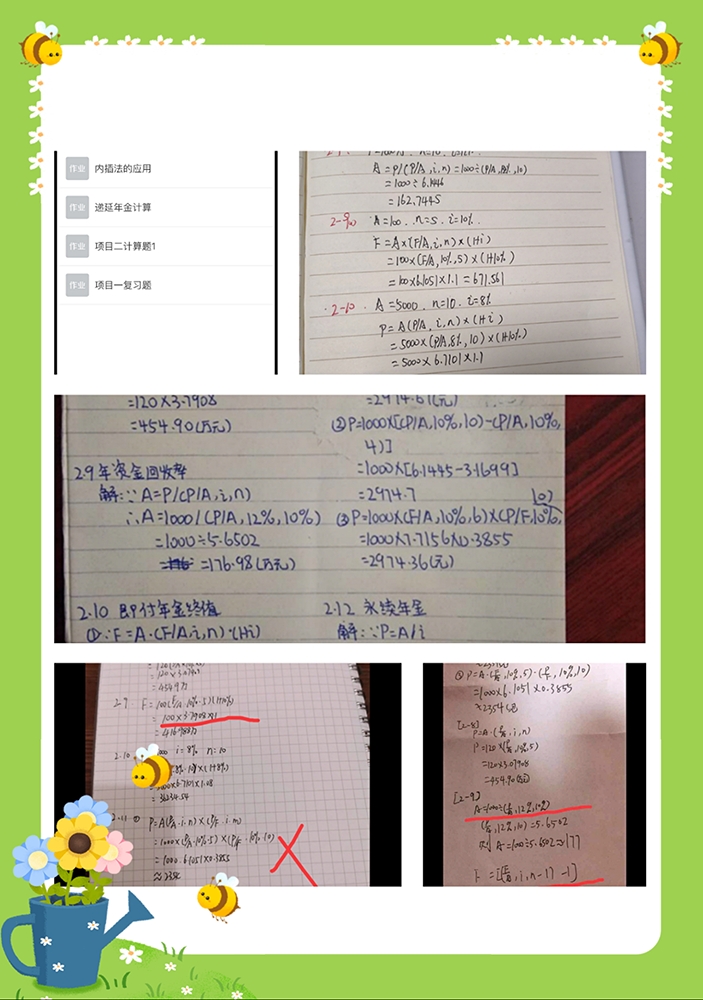 作业 内插法的应用
作业 递延年金计算
作业 项目二计算题1
作业 项目一复习题
A = P/(P/A,i,n) = 1000÷(P/A,10%,10)
= 1000÷6.1446
= 162.7445
A=100 . n=5 . i=10%.
F = A×(F/A,i,n)×(1+i)
= 100×(F/A,10%,5)×(1+10%)
= 100×6.1051×1.1 = 671.561
2-10 . A=5000 . n=10 . i=8%
P = A(P/A, i,n)×(1+i)
= 5000×(P/A,8%,10)×(1+10%)
= 5000×6.7101×1.1
=120×3.7908
=454.90(万元)
2.9 年资金回收率
解:∵A=P/(P/A,i,n)
∴A=1000/(P/A,12%,10%)
=1000÷5.6502
=176.98(万元)
2.10 即付年金终值
①∵F=A·(F/A,i,n)·(1+i)
=2974.61(元)
②P=1000×[(P/A,10%,10)-(P/A,10%,
4)]
=1000×[6.1445-3.1699]
=2974.7
③P=1000×(F/A,10%,6)×(P/F,10%,
10)
=1000×7.7156×0.3855
=2974.36(元)
2.12 永续年金
解:∵P=A/i
=120×3.7907
=454.9万
2-9 F=100(F/A·10%·5)×(1+10%)
=100×3.7908×1.1
=416.988万
2.10
i=8% n=10
×6.7101×1.08
=36234.54
2-11 ① P=A(F/A·i·n)×(P/F·i·m)
=1000×(F/A·10%·5)×(P/F·10%·10)
=1000·6.1051×0.3855
③P=A·(F/A,10%,5)·(P/F,10%,10)
=1000×6.1051×0.3855
≈2354元
[2-8]
P=A·(P/A,i,n)
=120×3.07908
=454.90(万元)
[2-9]
A=1000÷(P/A,12%,10%)
(P/A,12%,10)=5.6502
则 A=1000÷5.6502≈177
F =[F/A,i,n-1)-1]